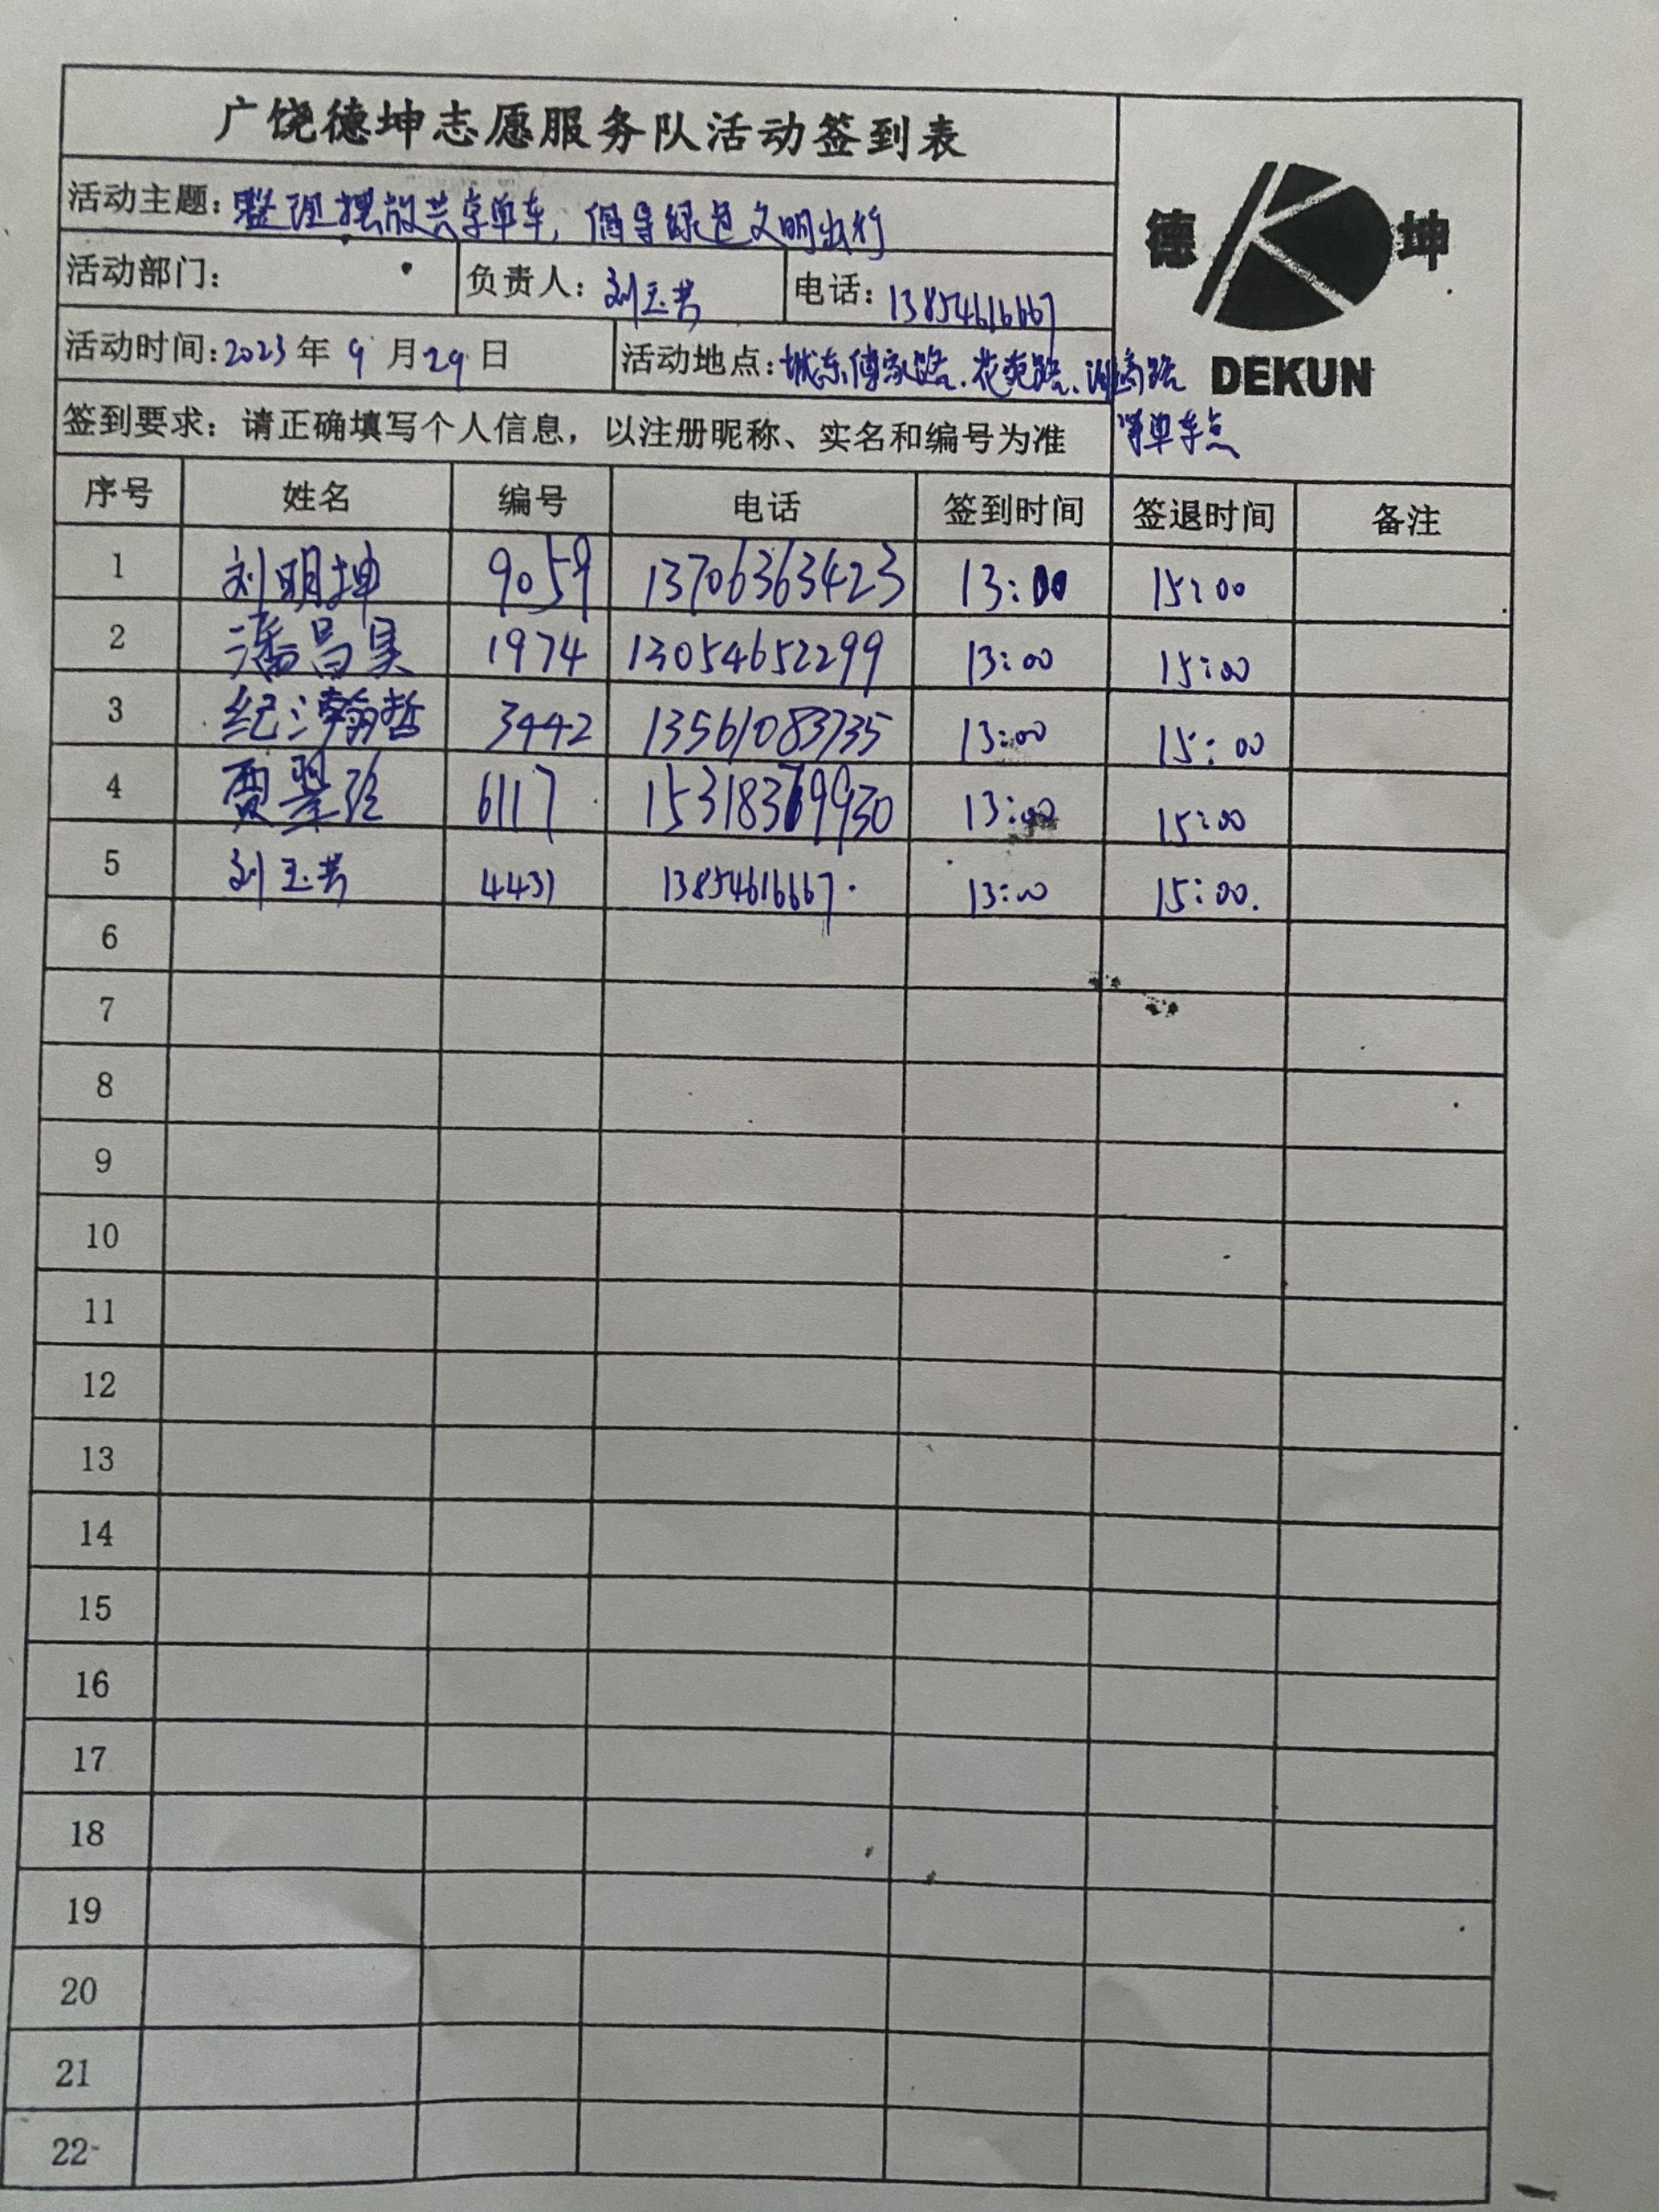 广饶德坤志愿服务队活动签到表
德 坤
DEKUN
活动主题：整理摆放共享单车，倡导绿色文明出行
活动部门： 负责人：刘玉共 电话：13854616667
活动时间：2023年9月29日 活动地点：城东傅家路.花苑路.
等单车点
签到要求：请正确填写个人信息，以注册昵称、实名和编号为准
序号 姓名 编号 电话 签到时间 签退时间 备注
1 刘明坤 9059 13706363423 13:00 15:00
2 潘昌昊 1974 13054652299 13:00 15:00
3 纪瀚哲 3442 13561083735 13:00 15:00
4 贾翠 6117 15318369930 13:00 15:00
5 刘玉共 4431 13854616667. 13:00 15:00.
6
7
8
9
10
11
12
13
14
15
16
17
18
19
20
21
22